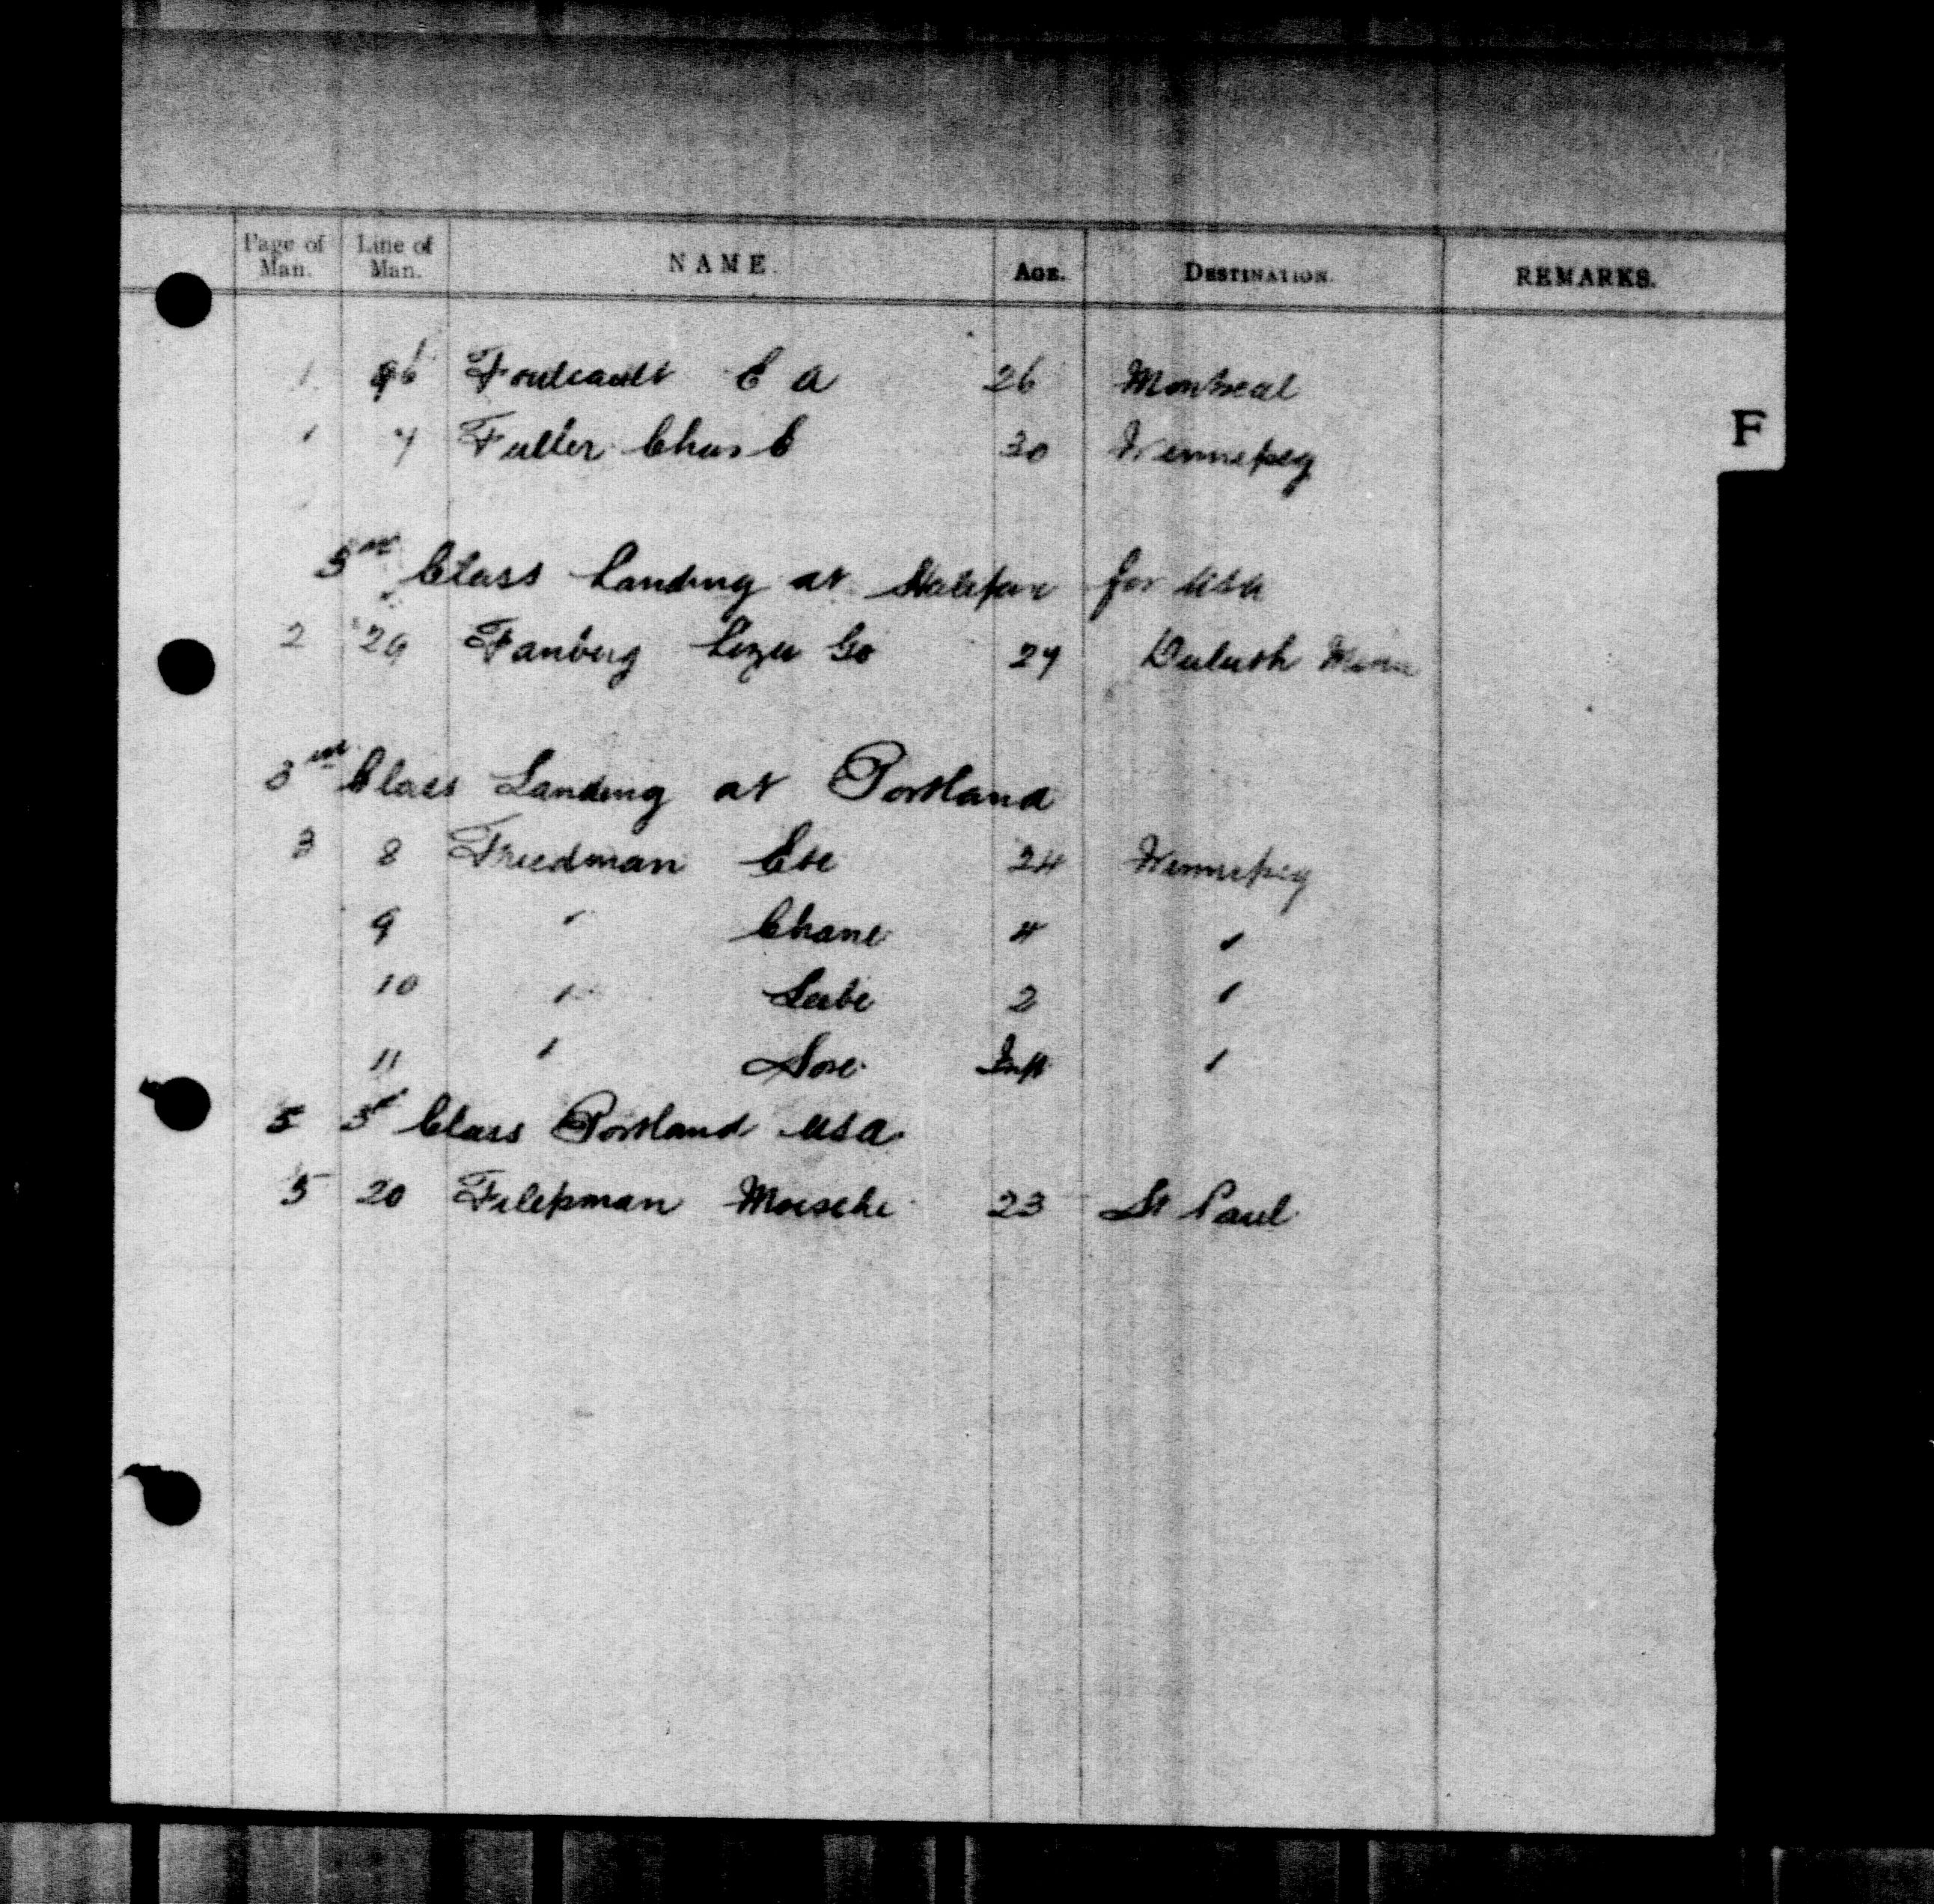 Page of Man. Line of Man. NAME. AGE. DESTINATION. REMARKS.
1 6 Foulcault E A 26 Montreal
1 7 Fuller Chas E 30 Winnepeg
F
3rd Class Landing at Halifax for USA
2 29 Fanberg 27 Duluth Minn
3rd Class Landing at Portland
3 8 Friedman Ete 24 Winnepeg
9 " Chane 4 "
10 " Leibe 2 "
11 " Sore Inft "
5 3rd Class Portland USA
5 20 Filepman Moische 23 St Paul